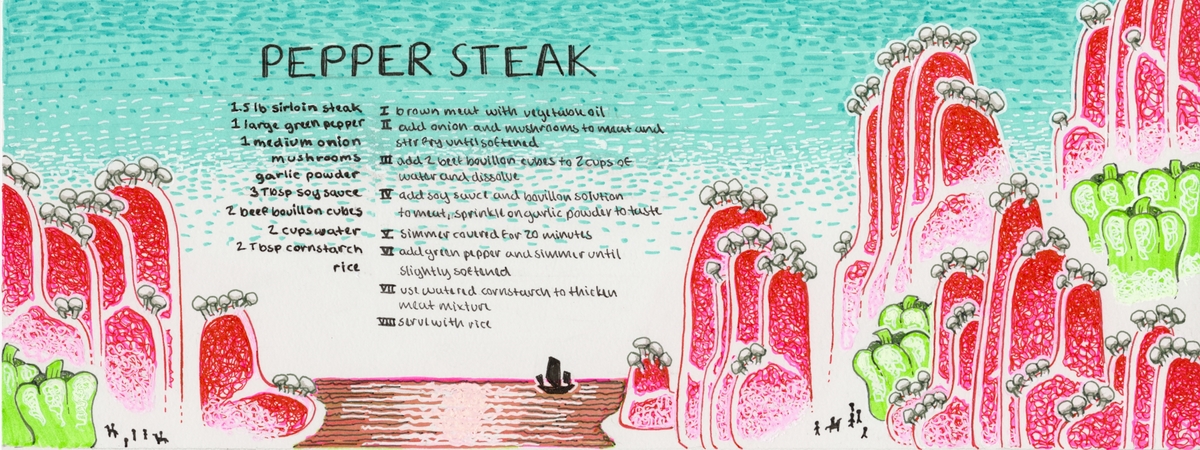 PEPPER STEAK
1.5 lb sirloin steak
1 large green pepper
1 medium onion
mushrooms
garlic powder
3 Tbsp soy sauce
2 beef bouillon cubes
2 cups water
2 Tbsp cornstarch
rice
I brown meat with vegetable oil
II add onion and mushrooms to meat and
stir fry until softened
III add 2 beef bouillon cubes to 2 cups of
water and dissolve
IV add soy sauce and bouillon solution
to meat, sprinkle on garlic powder to taste
V simmer covered for 20 minutes
VI add green pepper and simmer until
slightly softened
VII use watered cornstarch to thicken
meat mixture
VIII serve with rice